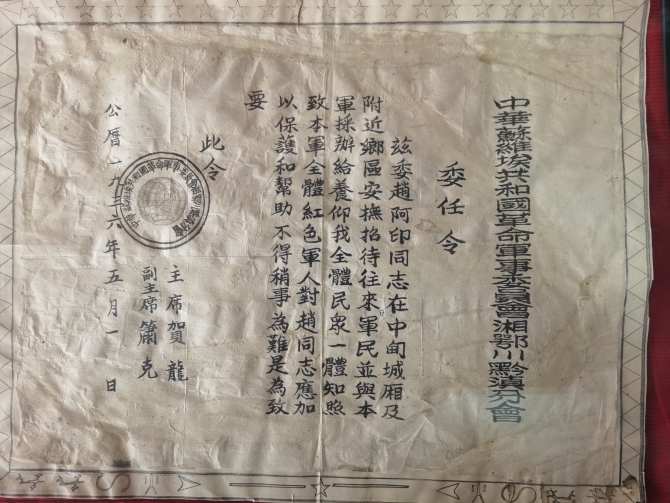 中華蘇維埃共和國革命軍事委員會湘鄂川黔滇分會
委任令
茲委趙阿印同志在中甸城廂及
附近鄉區安撫招待往來軍民並與本
軍採辦給養仰我全體民衆一體知照
致本軍全體紅色軍人對趙同志應加
以保護和幫助不得稍事為難是為致
要
此令
主席賀龍
副主席簫克
公曆一九三六年五月一日